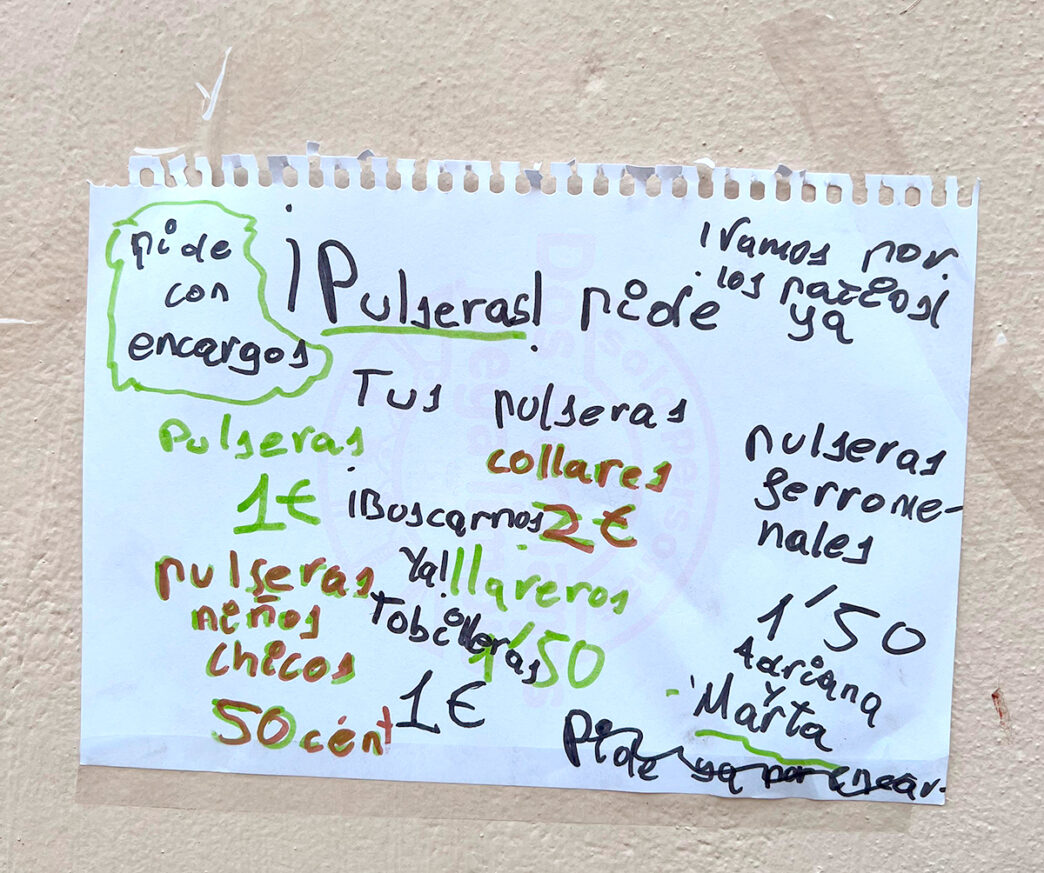 pide
con
encargos
¡Pulseras! pide ya
¡Vamos por
los patios!
Tus pulseras
Pulseras
1€
collares
2€
¡Buscarnos
Ya!
llaveros
1'50
pulseras
niños
chicos
50 cént
Tobilleras
1€
pulseras
ferrome-
nales
1'50
Adriana
y
Marta
Pide ya por encar-